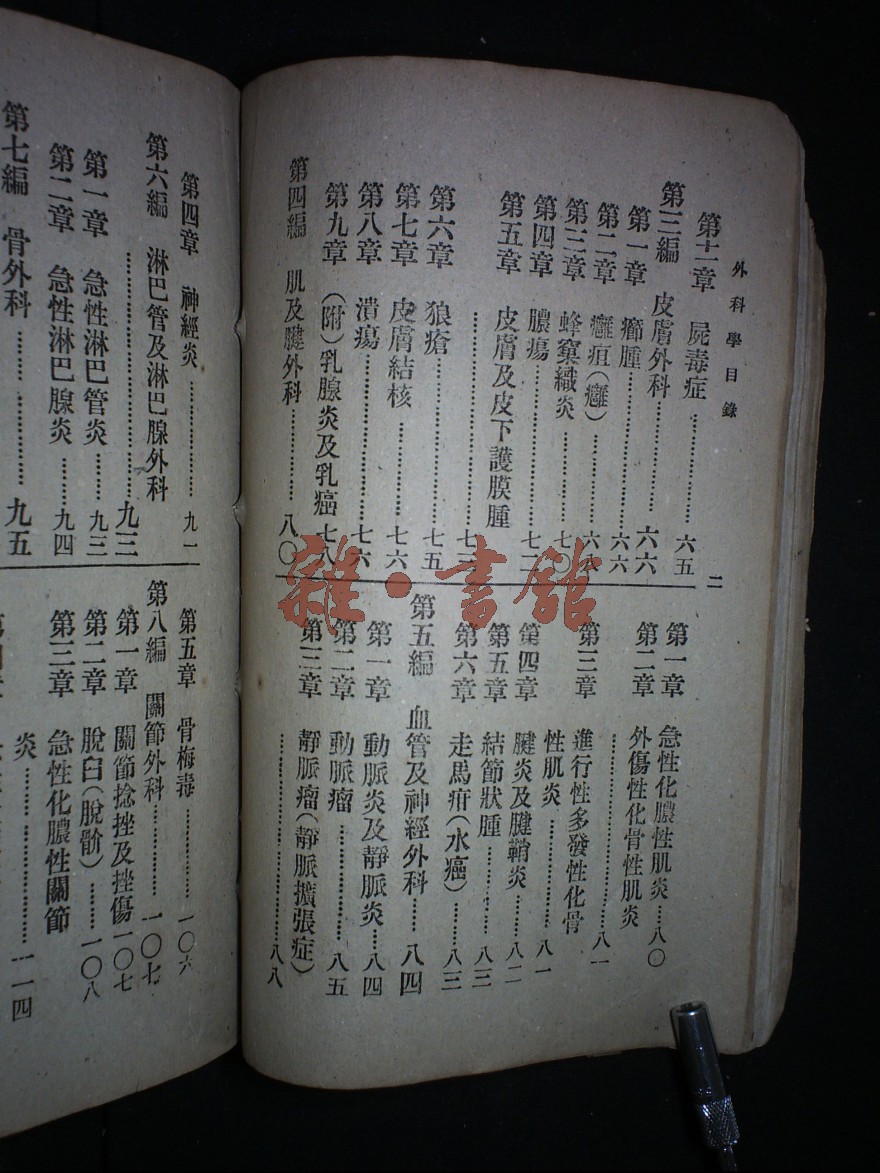 外科學目錄
二
第十一章 屍毒症……六五
第三編 皮膚外科……六六
第一章 癤腫……六六
第二章 癰疽(癰)……
第三章 蜂窠織炎……七〇
第四章 膿瘍……七二
第五章 皮膚及皮下護膜腫
……七三
第六章 狼瘡……七五
第七章 皮膚結核……七六
第八章 潰瘍……七六
第九章 (附)乳腺炎及乳癌 七八
第四編 肌及腱外科……八〇
第一章 急性化膿性肌炎……八〇
第二章 外傷性化骨性肌炎
……八一
第三章 進行性多發性化骨
性肌炎……八一
第四章 腱炎及腱鞘炎……八二
第五章 結節狀腫……八三
第六章 走馬疳(水癌)……八三
第五編 血管及神經外科……八四
第一章 動脈炎及靜脈炎……八四
第二章 動脈瘤……八五
第三章 靜脈瘤(靜脈擴張症)
……八八
第四章 神經炎……九一
第六編 淋巴管及淋巴腺外科
……九三
第一章 急性淋巴管炎……九三
第二章 急性淋巴腺炎……九四
第七編 骨外科……九五
第五章 骨梅毒……一〇六
第八編 關節外科……一〇七
第一章 關節捻挫及挫傷 一〇七
第二章 脫臼(脫骱)……一〇八
第三章 急性化膿性關節
炎……一一四
雜·書館